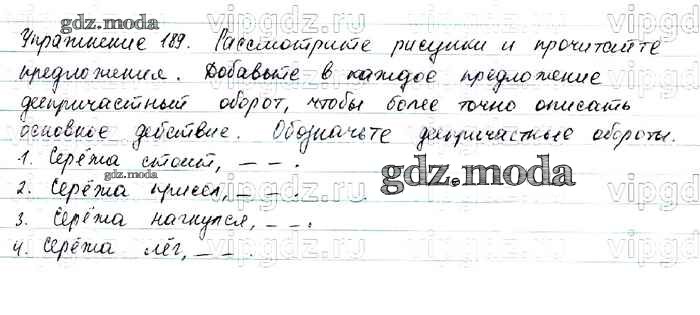 Упражнение 189. Рассмотрите рисунки и прочитайте
предложения. Добавьте в каждое предложение
деепричастный оборот, чтобы более точно описать
основное действие. Обозначьте деепричастные обороты.
1. Серёжа стоит, – – .
2. Серёжа присел, – – .
3. Серёжа нагнулся, – – .
4. Серёжа лёг, – – .
gdz.moda
gdz.moda
gdz.moda
gdz.moda
vipgdz.ru
vipgdz.ru
vipgdz.ru
vipgdz.ru